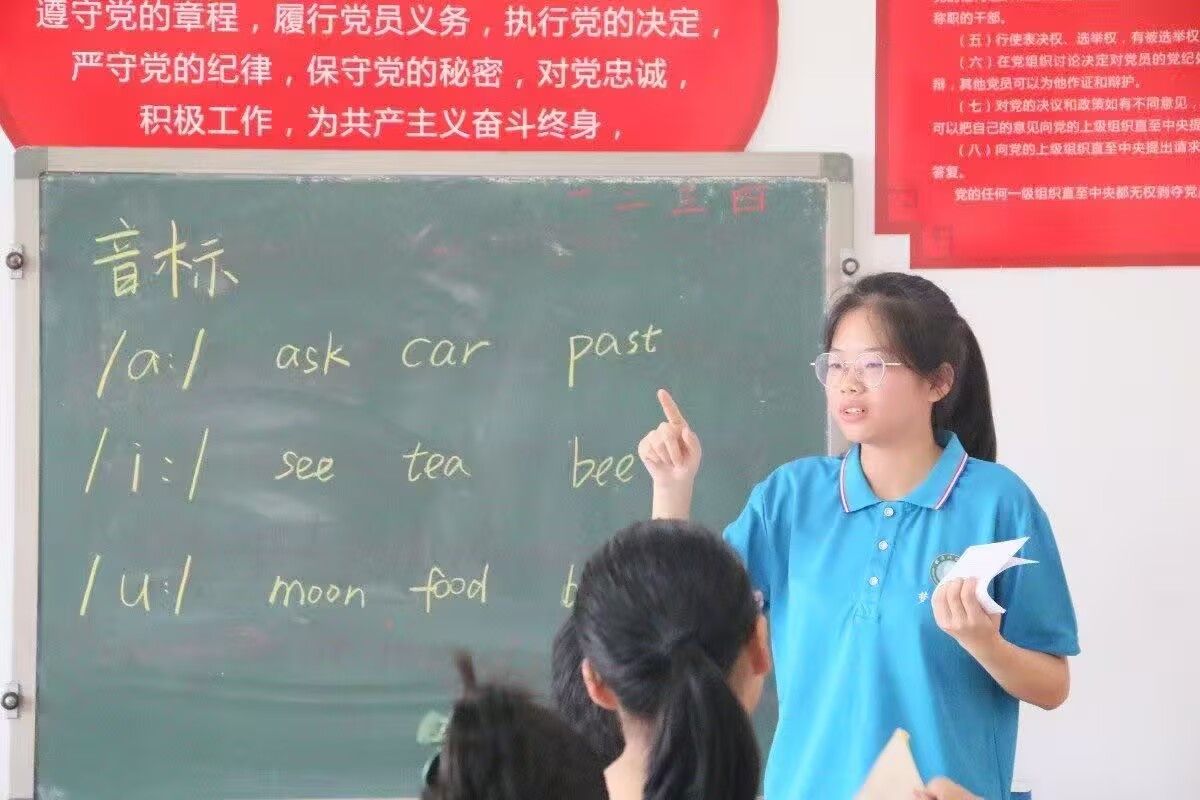 遵守党的章程，履行党员义务，执行党的决定，
严守党的纪律，保守党的秘密，对党忠诚，
积极工作，为共产主义奋斗终身，
称职的干部。
（五）行使表决权、选举权，有被选举权
（六）在党组织讨论决定对党员的党纪处
辩，其他党员可以为他作证和辩护。
（七）对党的决议和政策如有不同意见，
可以把自己的意见向党的上级组织直至中央提
（八）向党的上级组织直至中央提出请求
答复。
党的任何一级组织直至中央都无权剥夺党
一 二 三 四
音标
/a:/ ask car past
/i:/ see tea bee
/u:/ moon food
梦